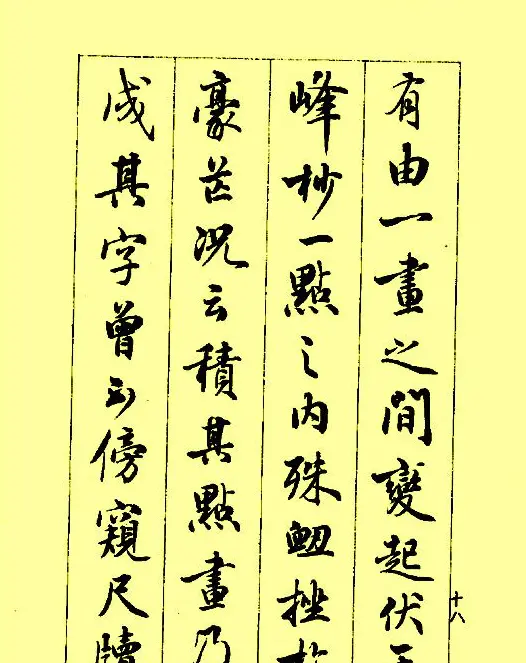 有由一畫之間變起伏
峰杪一點之内殊衂挫
豪芒況云積其點畫乃
成其字曾不傍窺尺牘
十八